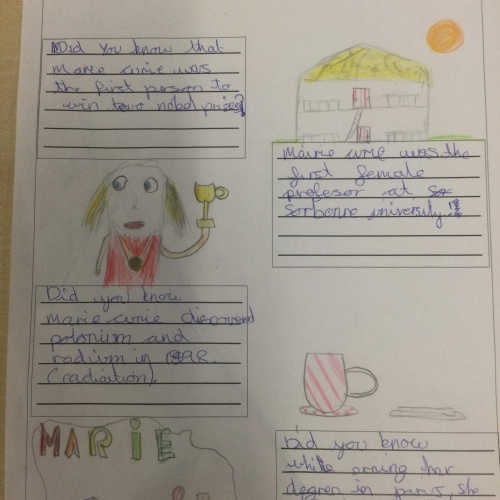 Did you know that
marie curie was
the first person to
win two nobel prises?
Mairie curie was the
first female
profesor at
Sorbonne university!!
Did you know
marie curie discovered
polonium and
radium in 1898.
(radiation)
MARiE
Did you know
while erning har
degree in paris, she